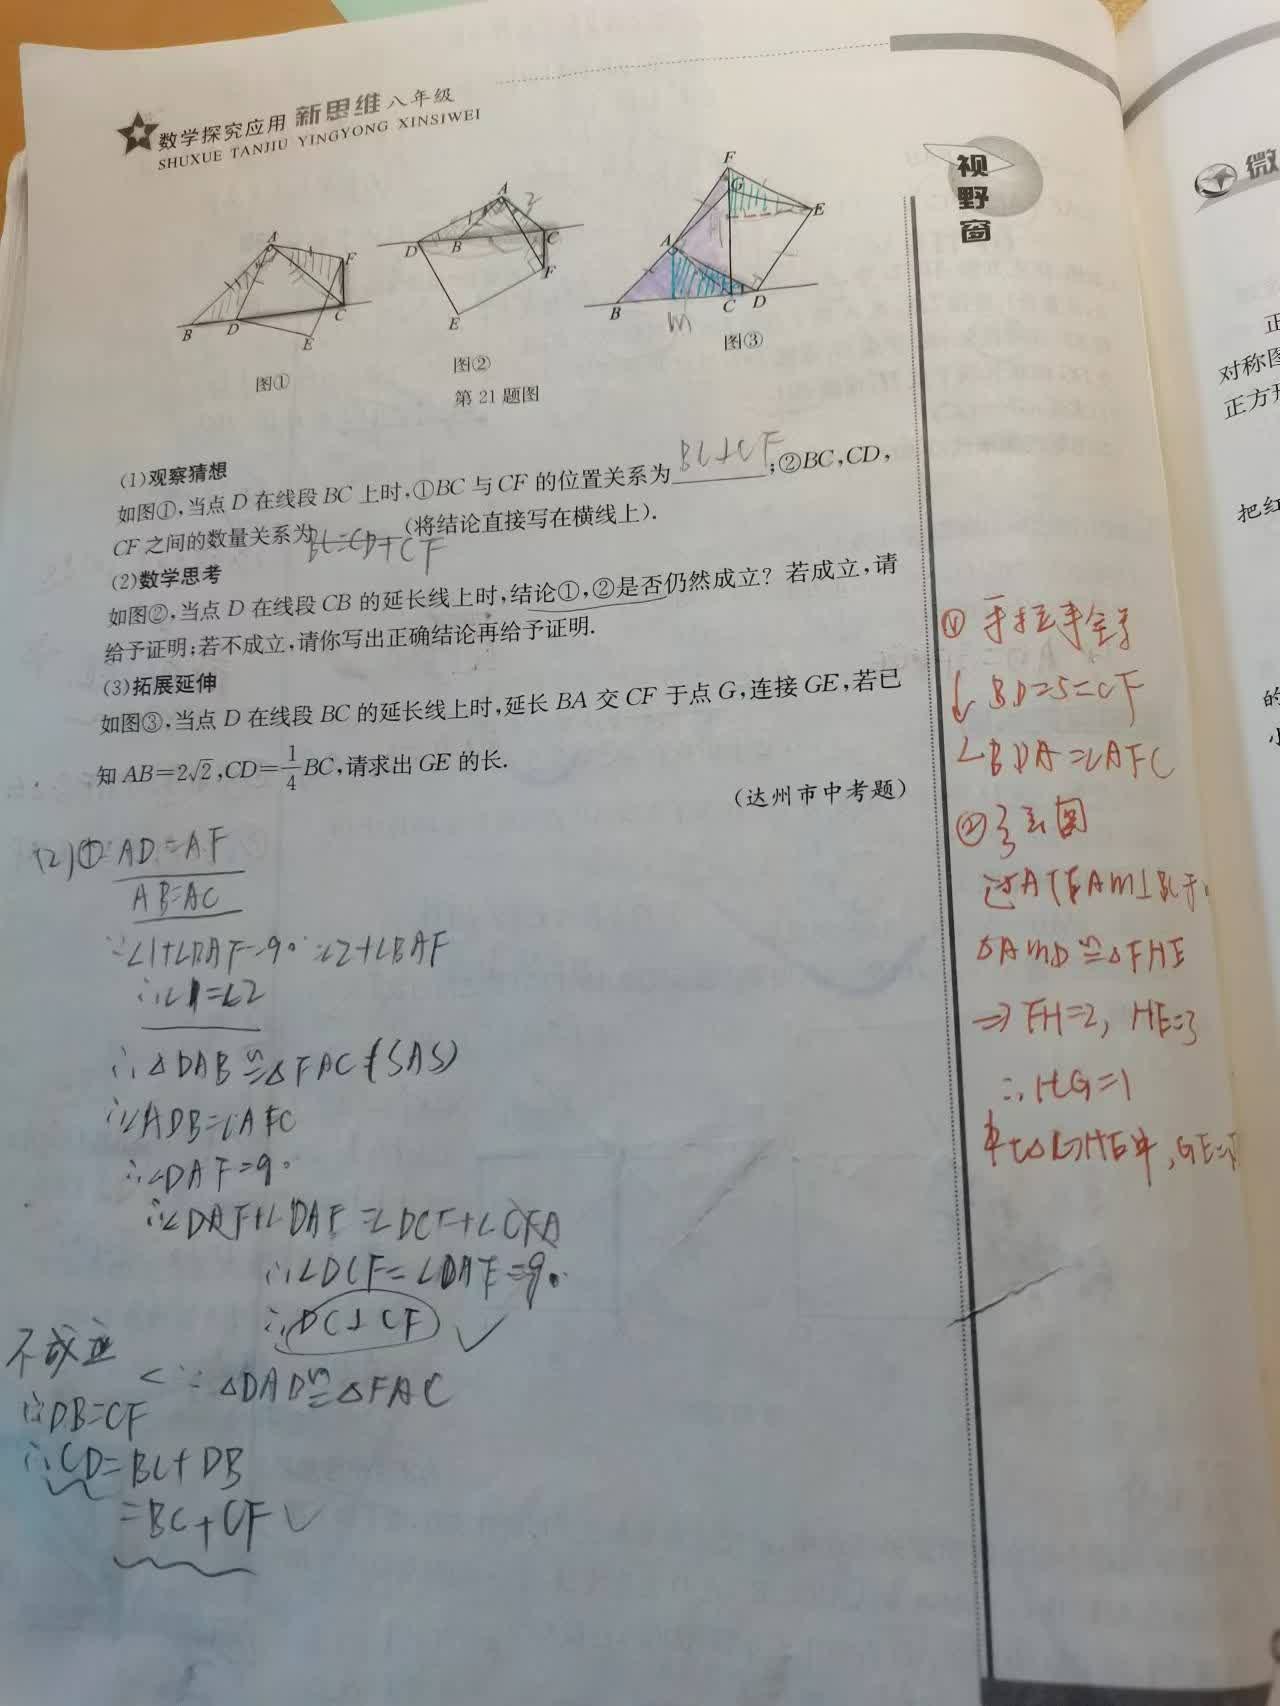 数学探究应用 新思维 八年级
SHUXUE TANJIU YINGYONG XINSIWEI
A
B
D
C
E
F
图①
A
1
2
D
B
C
F
E
图②
F
G
E
A
B
C
D
M
图③
第21题图
(1)观察猜想
如图①,当点D在线段BC上时,①BC与CF的位置关系为BC⊥CF;②BC,CD,
CF之间的数量关系为BC=CD+CF(将结论直接写在横线上).
(2)数学思考
如图②,当点D在线段CB的延长线上时,结论①,②是否仍然成立?若成立,请
给予证明;若不成立,请你写出正确结论再给予证明.
(3)拓展延伸
如图③,当点D在线段BC的延长线上时,延长BA交CF于点G,连接GE,若已
知AB=2√2,CD=1/4BC,请求出GE的长.
(达州市中考题)
(2)①∵AD=AF
AB=AC
∵∠1+∠BAF=90°=∠2+∠BAF
∴∠1=∠2
∴△DAB≌△FAC(SAS)
∴∠ADB=∠AFC
∵∠DAF=90
∴∠DCF=∠DAF=90
∴DC⊥CF ✓
不成立
∵△DAB≌△FAC
∴DB=CF
∴CD=BC+DB
=BC+CF ✓
视野窗
① 手拉手全等
↓BD=5=CF
∠BDA=∠AFC
②弦图
过A作AM⊥BC于
△AMD≌△FHE
⇒FH=2,HE=3
∴HG=1
Rt△GHE中,GE=
微
对称图
正方形
把红
的